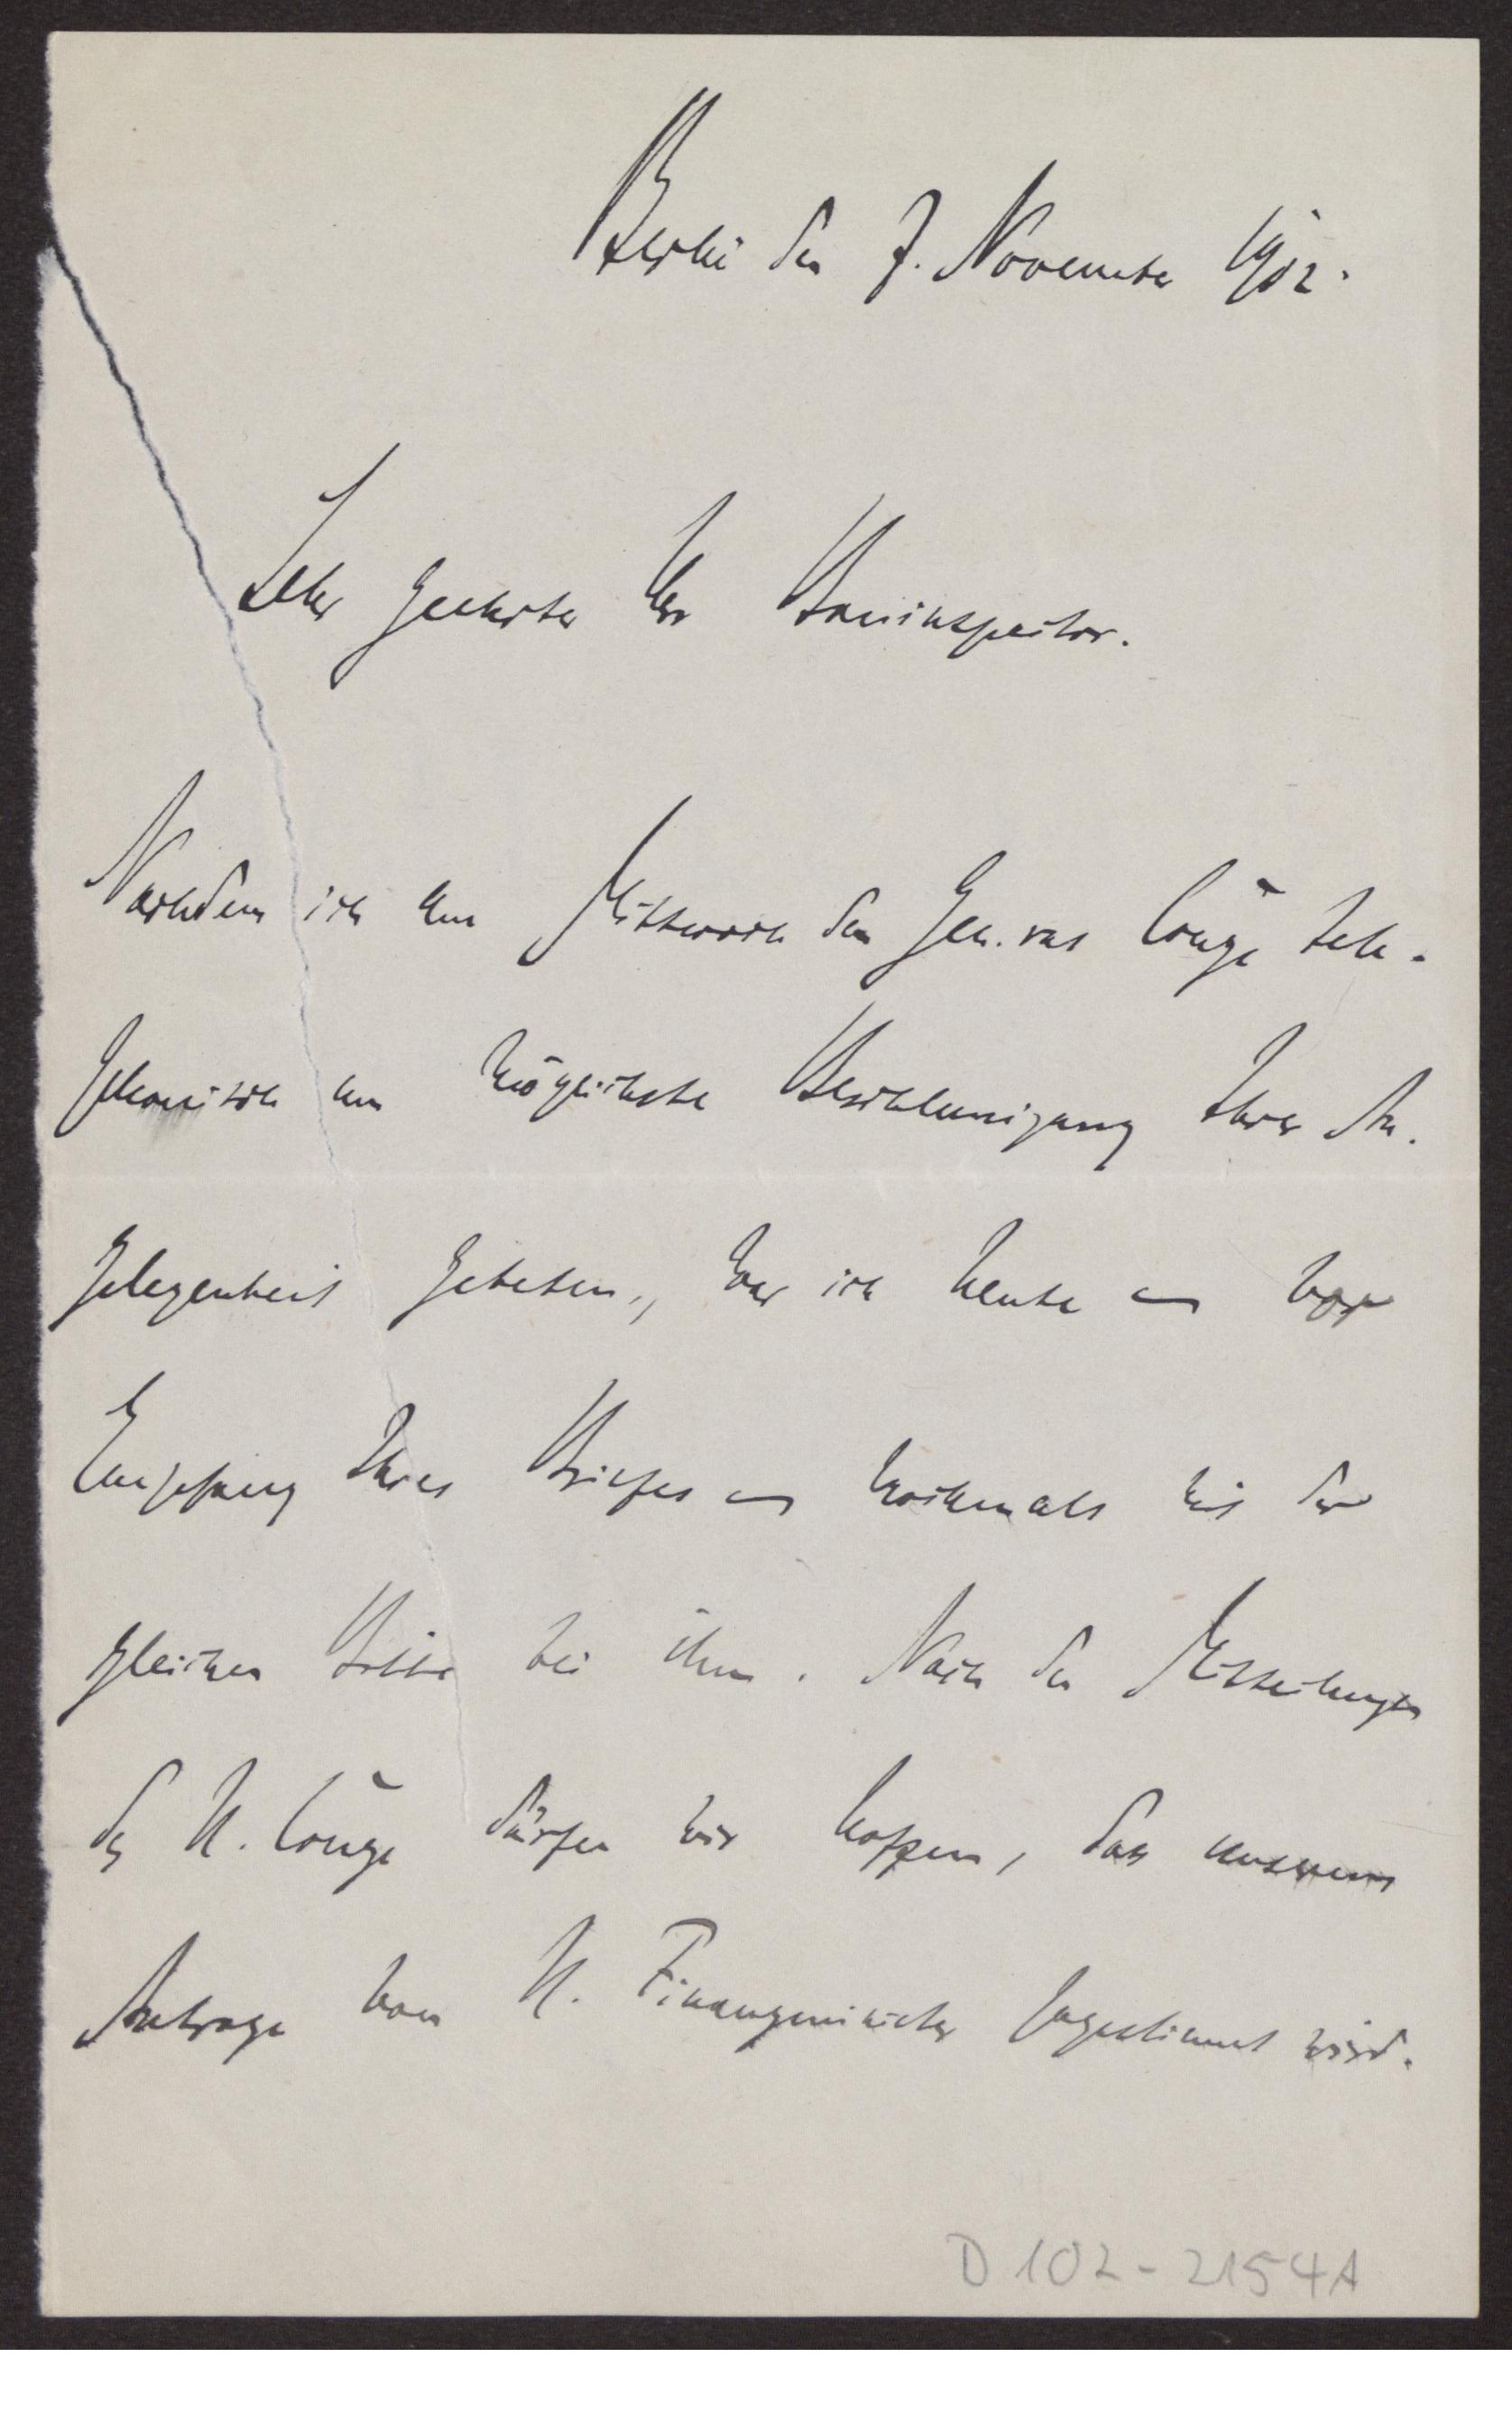 Berlin den 7. November 1902.
Sehr geehrter Herr Bauinspector.
Nachdem ich am Mittwoch den Geh. rat Lange tele-
phonisch um möglichste Beschleunigung Ihrer An-
gelegenheit gebeten, war ich heute – vor
Empfang Ihres Briefes – nochmals mit der
gleichen Bitte bei ihm. Nach den Mitteilungen
des H. Lange dürfen wir hoffen, dass unserem
Antrage vom H. Finanzminister zugestimmt wird.
D 102-2154A